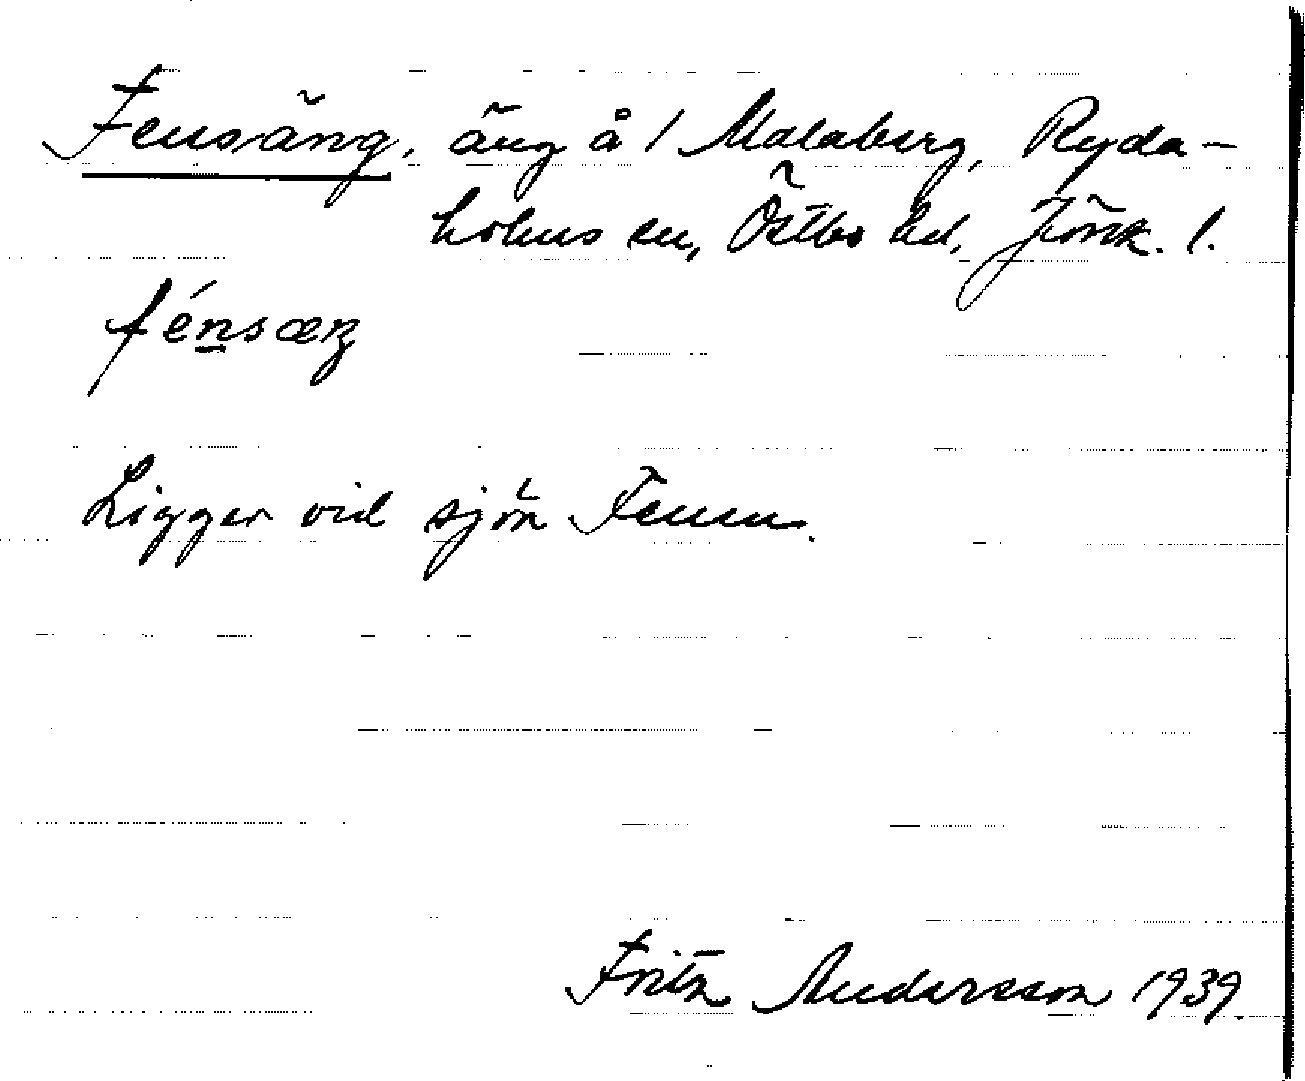 Fensäng, äng å / Malaberg, Ryda-
holms sn, Östbo hd, Jönk. l.
fénsæŋ
Ligger vid sjön Femen.
Fritz Andersson 1939.